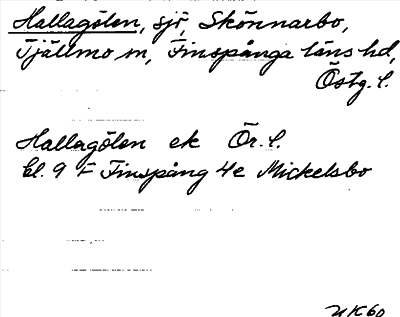 Hallagölen, sjö, Skönnarbo,
Tjällmo sn, Finspånga läns hd,
Östg. l.
Hallagölen ek Ör. l.
bl. 9 F Finspång 4e Mickelsbo
UK60